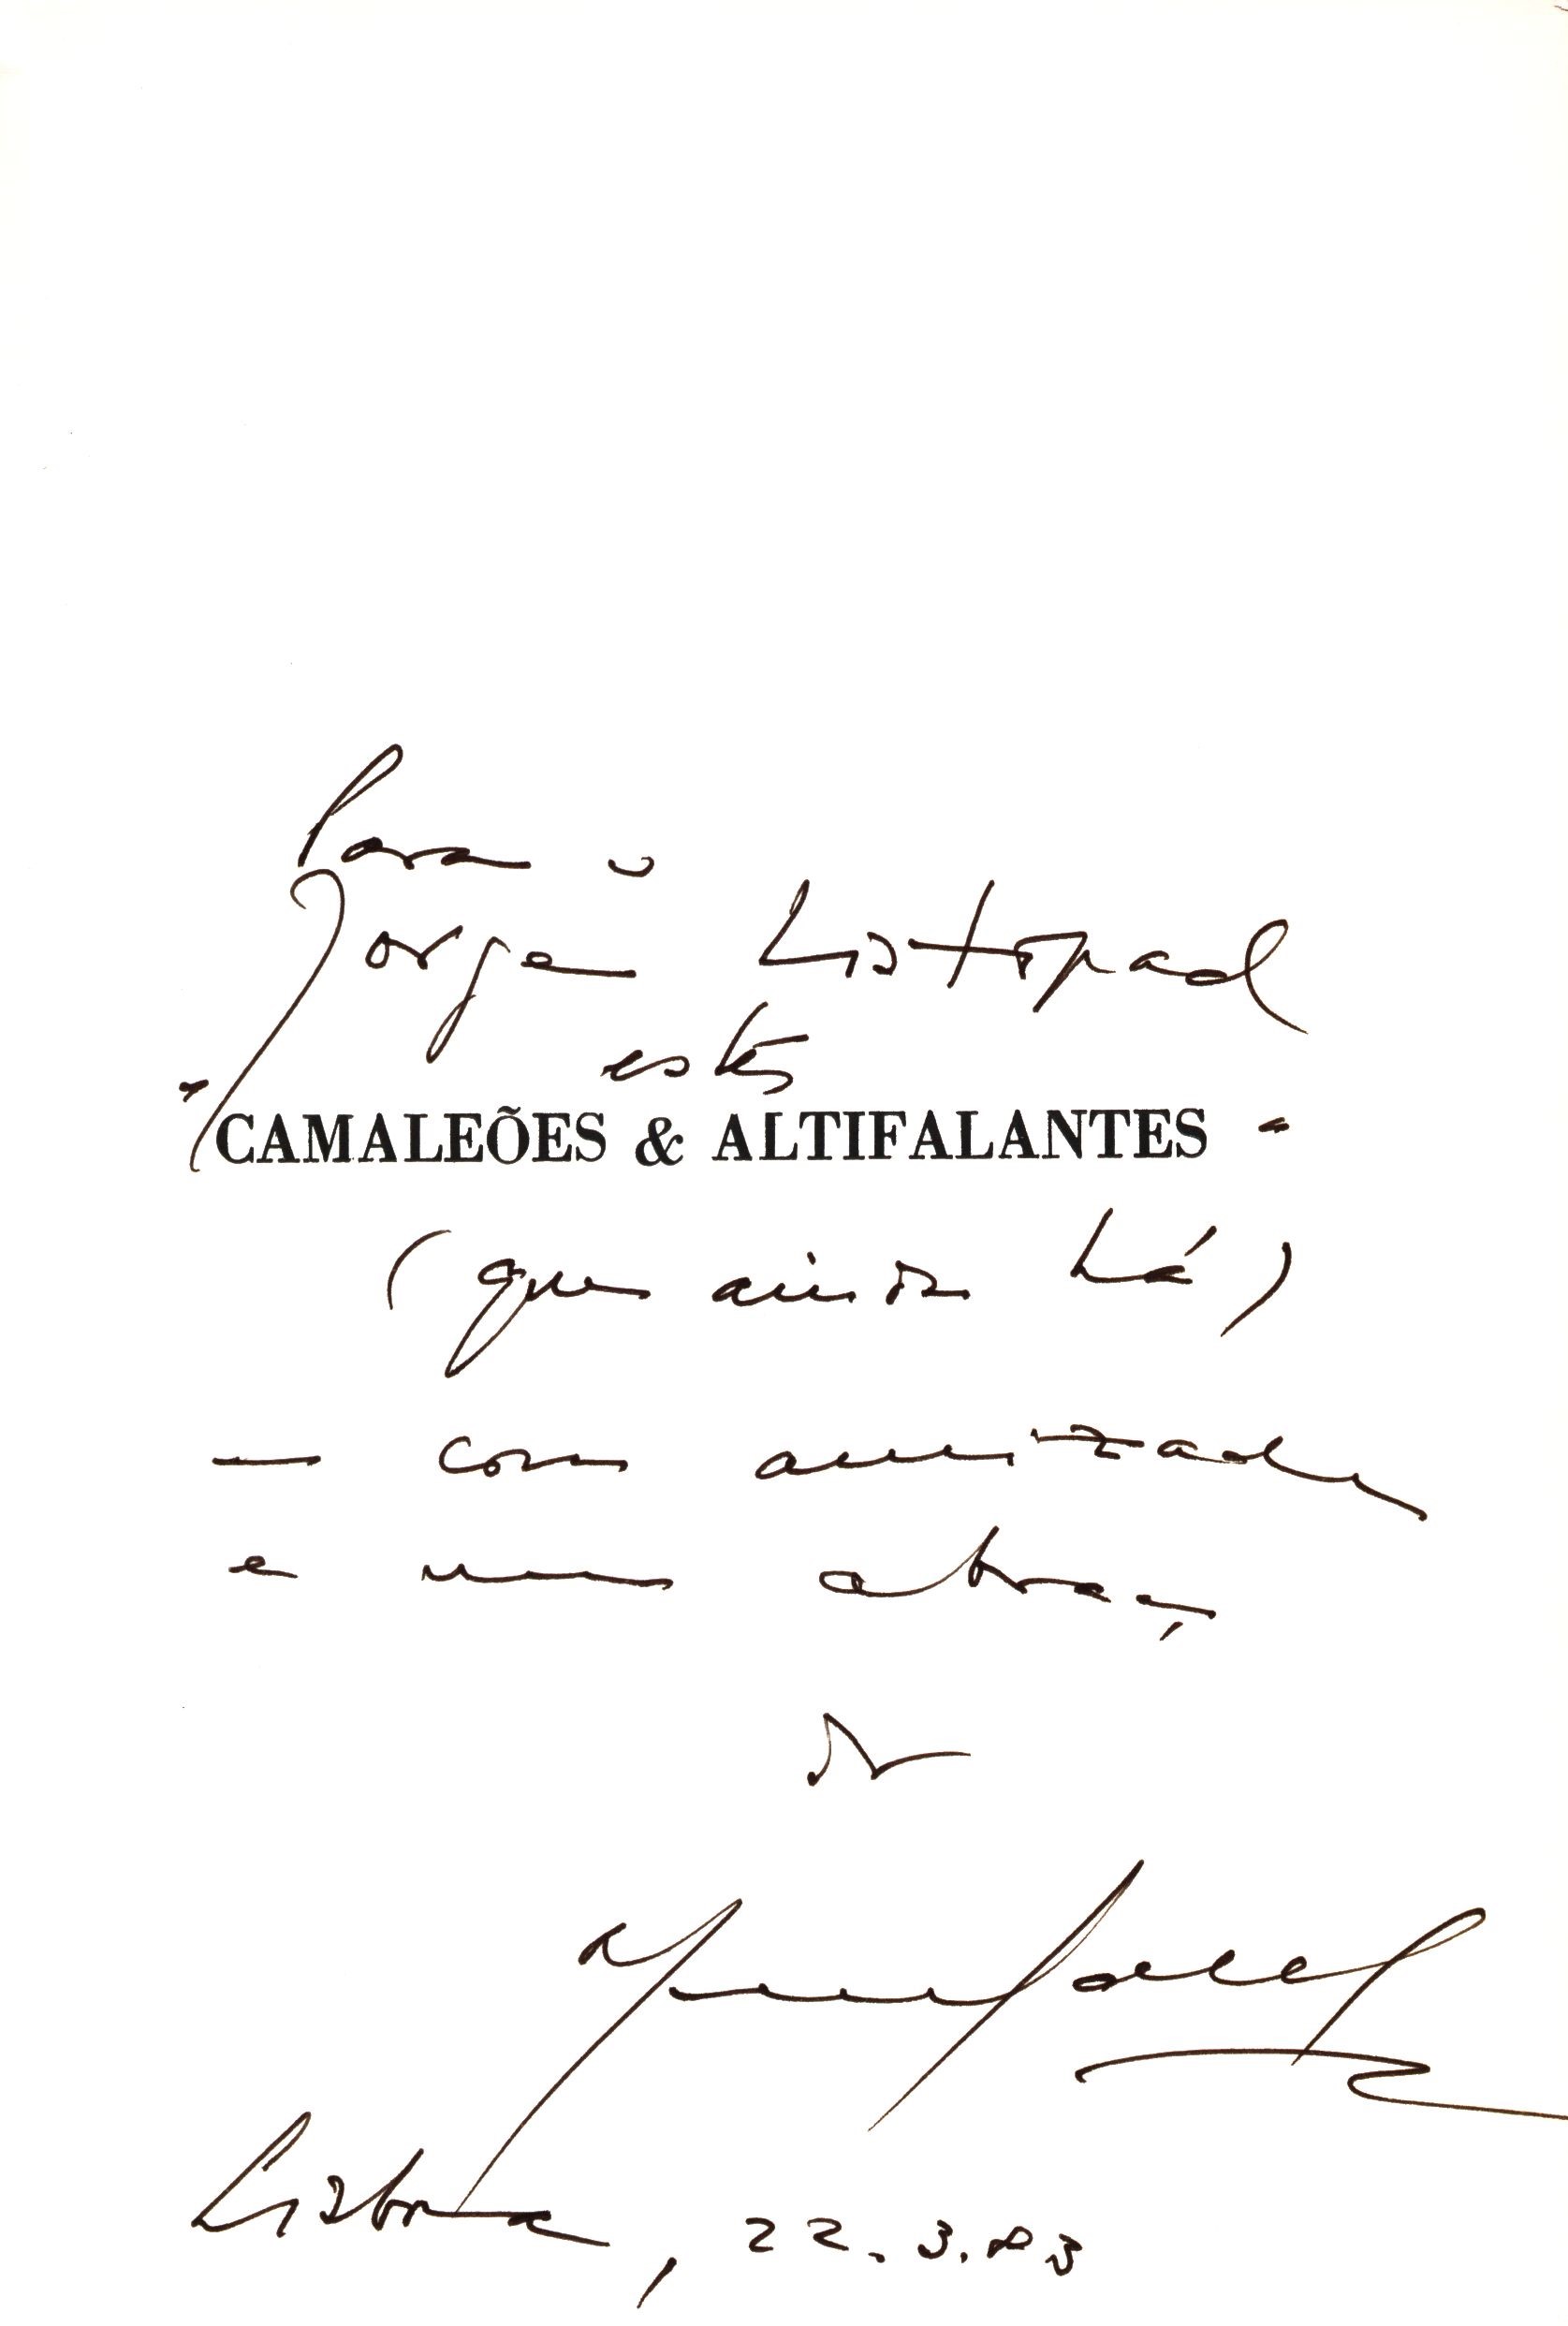 Para o
Jorge Listopad
estes
"CAMALEÕES & ALTIFALANTES"
(que ainda há)
— com amizade
e um abraço
do
Lisboa, 22.3.83